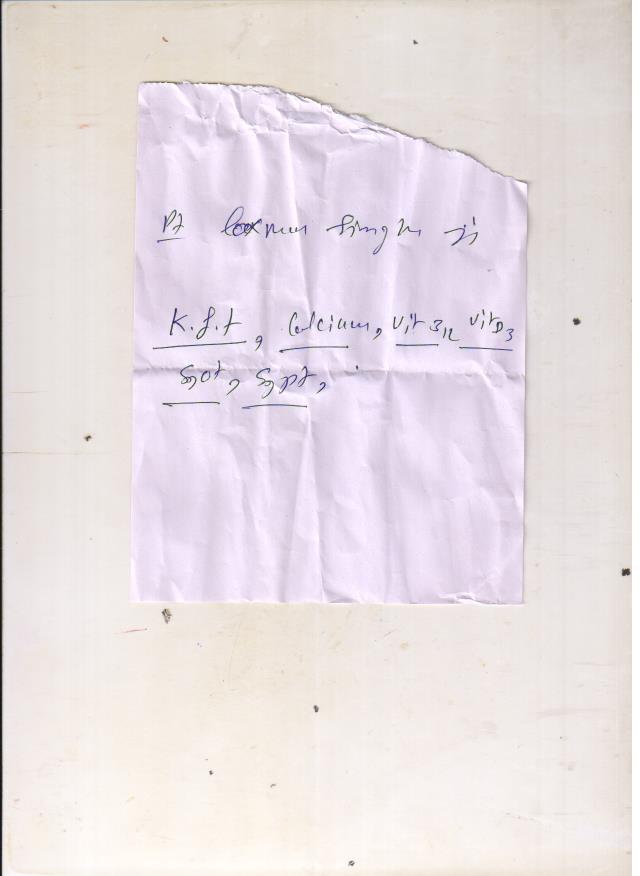 Pt Laxman Singh Ji
K.f.t, Calcium, Vit B12 Vit D3
Sgot, Sgpt,